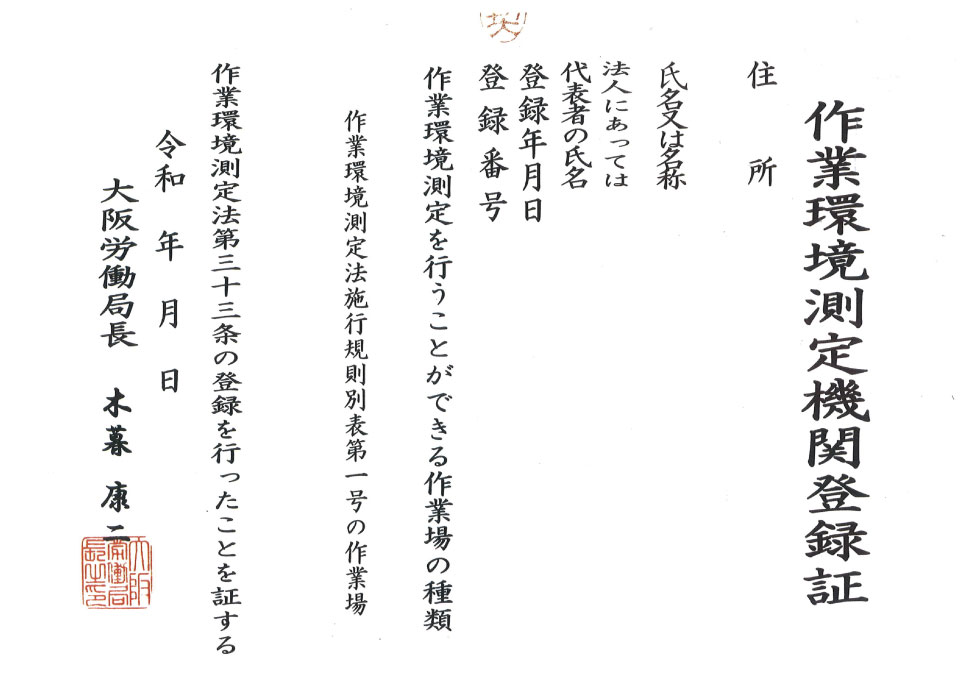 作業環境測定機関登録証
住所
氏名又は名称
法人にあっては
代表者の氏名
登録年月日
登録番号
作業環境測定を行うことができる作業場の種類
作業環境測定法施行規則別表第一号の作業場
作業環境測定法第三十三条の登録を行ったことを証する
令和 年 月 日
大阪労働局長 木暮 康二
大阪
労働局
長之印